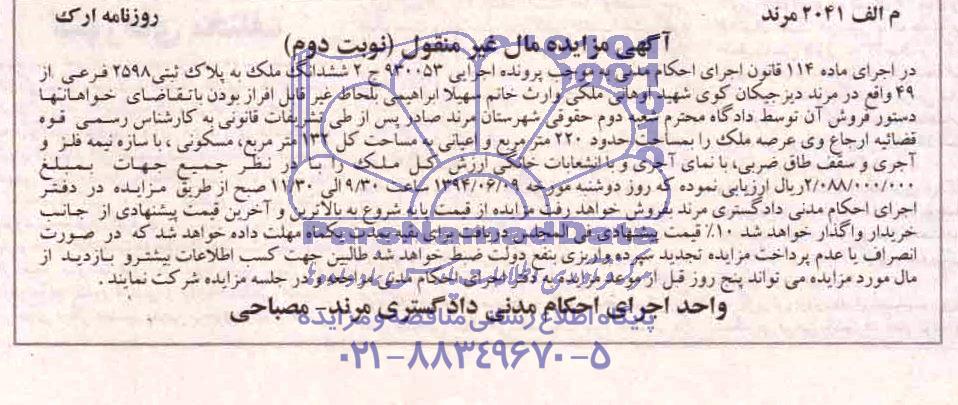 م الف ۲۰۴۱ مرند
روزنامه ارک
آگهی مزایده مال غیر منقول (نوبت دوم)
در اجرای ماده ۱۱۴ قانون اجرای احکام مدنی به موجب پرونده اجرایی ۹۳۰۰۵۳ ج ۲ ششدانگ ملک به پلاک ثبتی ۲۵۹۸ فرعی از
۴۹ واقع در مرند دیزجیکان کوی شهید اوهانی ملکی وراث خانم سهیلا ابراهیمی بلحاظ غیر قابل افراز بودن باتقاضای خواهانها
دستور فروش آن توسط دادگاه محترم شعبه دوم حقوقی شهرستان مرند صادر پس از طی تشریفات قانونی به کارشناس رسمی قوه
قضائیه ارجاع وی عرصه ملک را بمساحت حدود ۲۲۰ متر مربع و اعیانی به مساحت کل ۱۳۲ متر مربع، مسکونی ، با سازه نیمه فلز و
آجری و سقف طاق ضربی، با نمای آجری و با انشعابات خانگی ارزش کل ملک را با در نظر جمیع جهات بمبلغ
۲/۰۸۸/۰۰۰/۰۰۰ریال ارزیابی نموده که روز دوشنبه مورخه ۱۳۹۴/۰۶/۰۹ ساعت ۹/۳۰ الی ۱۱/۳۰ صبح از طریق مزایده در دفتر
اجرای احکام مدنی دادگستری مرند بفروش خواهد رفت مزایده از قیمت پایه شروع به بالاترین و آخرین قیمت پیشنهادی از جانب
خریدار واگذار خواهد شد ۱۰٪ قیمت پیشنهادی فی المجلس دریافت برای بقیه بمدت یکماه مهلت داده خواهد شد که در صورت
انصراف یا عدم پرداخت مزایده تجدید سپرده واریزی بنفع دولت ضبط خواهد شد طالبین جهت کسب اطلاعات بیشتر و بازدید از
مال مورد مزایده می تواند پنج روز قبل از موعد مزایده به دفتر اجرای احکام مدنی مراجعه و در جلسه مزایده شرکت نمایند .
واحد اجرای احکام مدنی دادگستری مرند - مصباحی
پایگاه اطلاع رسانی مناقصه و مزایده
۰۲۱-۸۸۳۴۹۶۷۰-۵